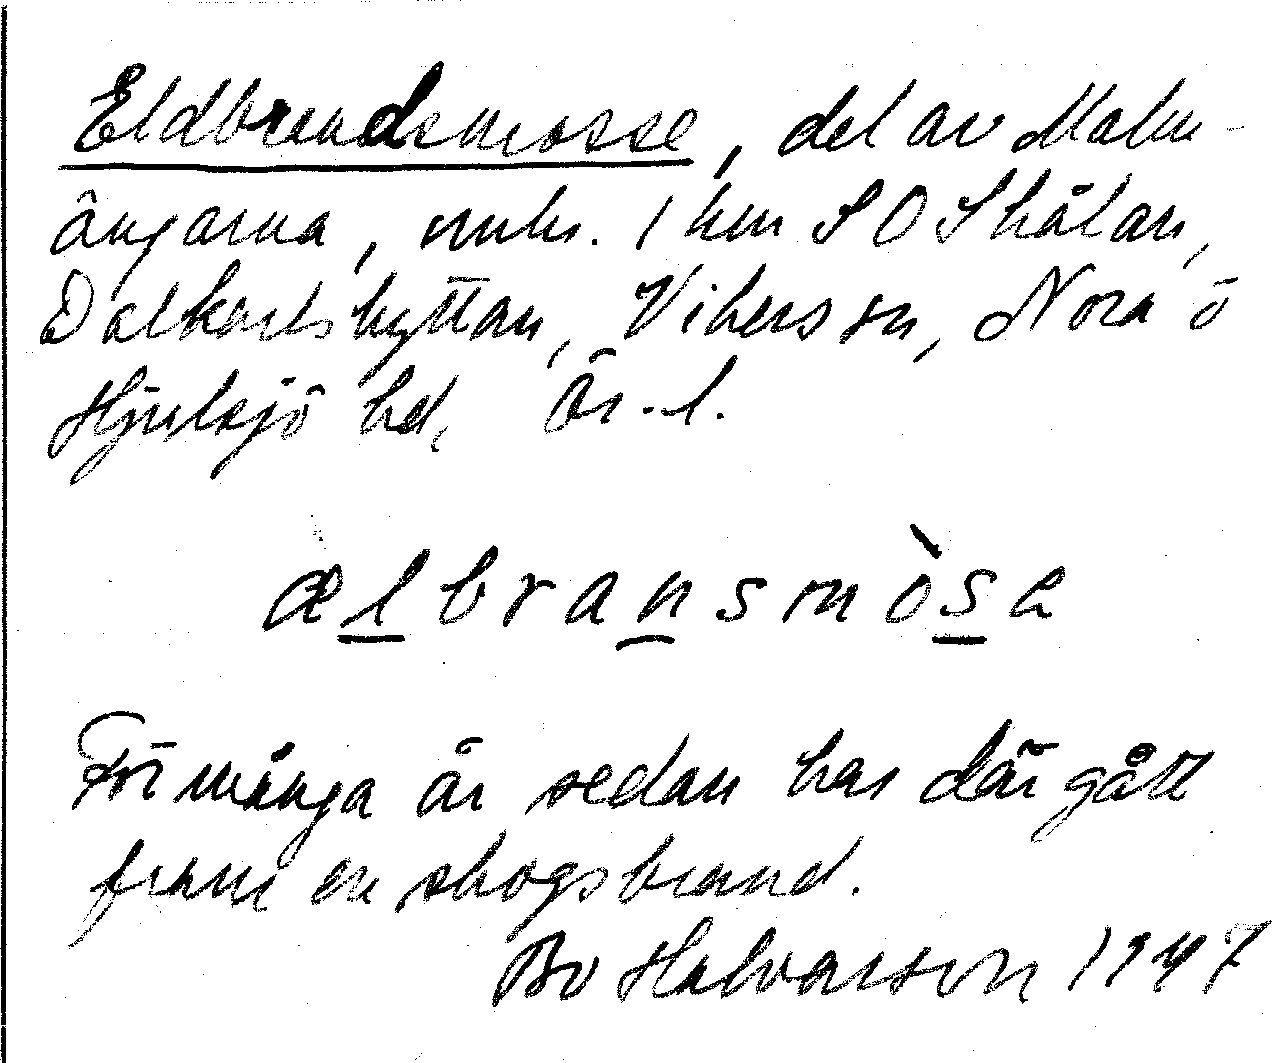 Eldbrandsmosse, del av Malm-
ängarna, omkr. 1 km SO Skålan,
Dalkarlshyttan, Vikersvn, Nora o
Hjulsjö hd, Ör. l.
ælbransmòsa
För många år sedan har där gått
fram en skogsbrand.
Bo Halvarson 1947